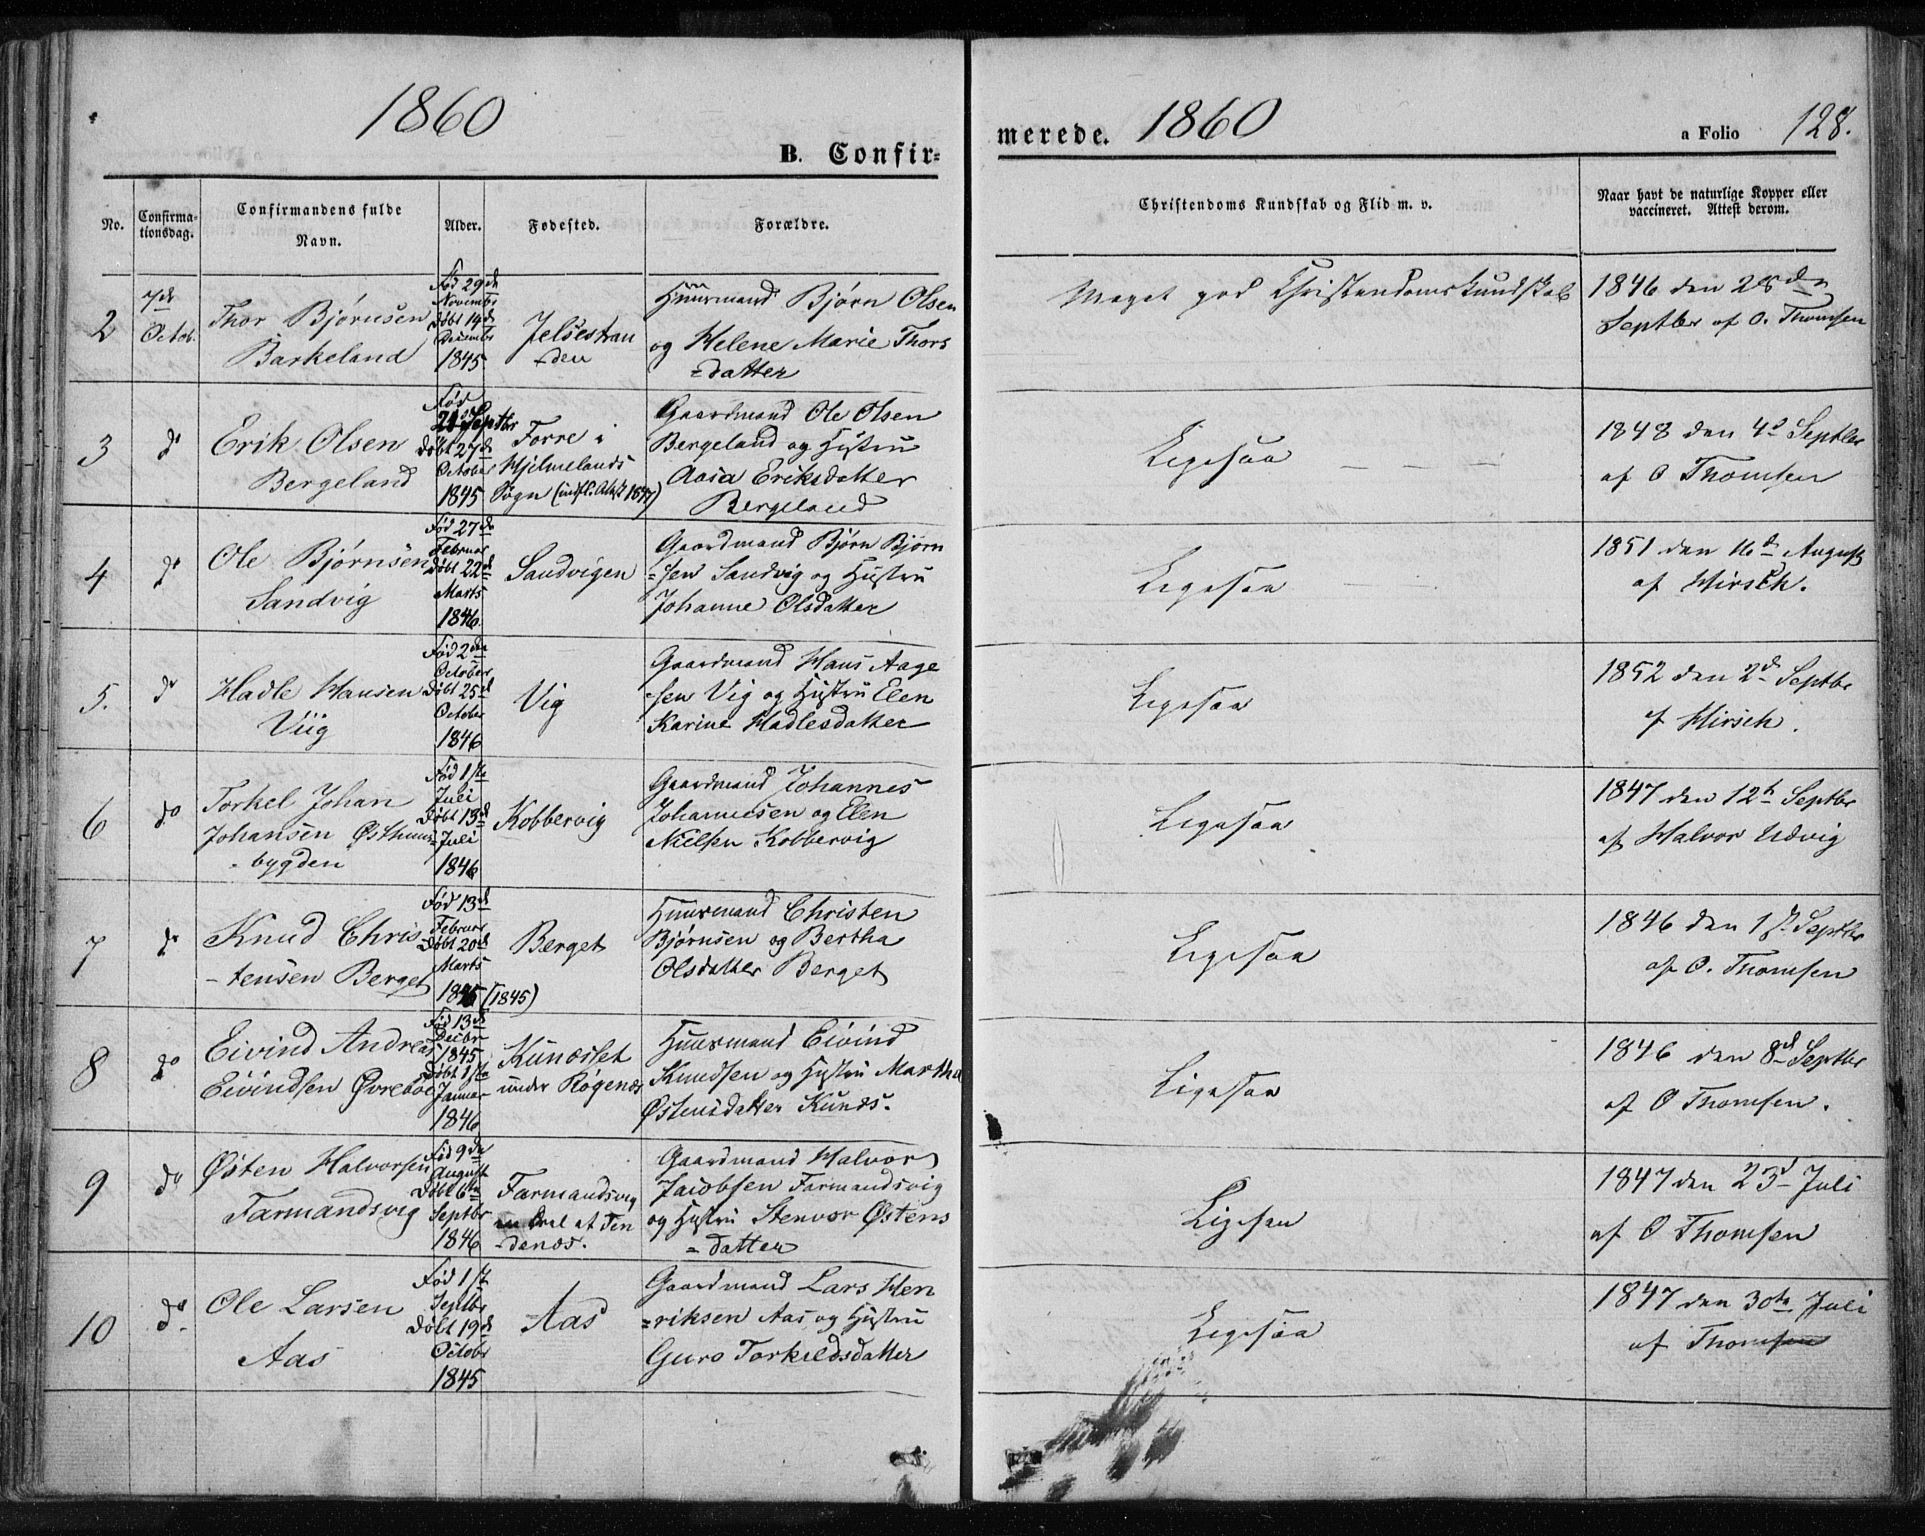 1860
B. Confir-
No.
Confirma-
tionsdag.
Confirmandens fulde
Navn.
Alder.
Fødested.
Forældre.
2
7de
Octob.
Thor Bjørnsen
Barkeland
Fød 29de
Novembr
Døbt 14de
Decembr
1845
Jelsestran
-den
Huusmand Bjørn Olsen
og Helene Marie Thors
-datter
3
do
Erik Olsen
Bergeland
Fød
Septbr
Døbt 27de
October
1845
Førre i
Hjelmelands
Sogn (indfl.
Gaardmand Ole Olsen
Bergeland og Hustru
Aasa Eriksdatter
Bergeland
4
do
Ole Bjørnsen
Sandvig
Fød 27de
Februar
Døbt 22de
Marts
1846.
Sandvigen
Gaardmand Bjørn Bjørn
=sen Sandvig og Hustru
Johanne Olsdatter
5.
do
Hadle Hansen
Viig
Fød 2den
October
Døbt 25de
October
1846
Vig
Gaardmand Hans Aage
-sen Vig og Hustru Elen
Karine Hadlesdatter
6
do
Torkel Johan
Johansen Østhuus
-bygden
Fød 1ste
Juli
Døbt 13de
Juli
1846
Kobbervig
Gaardmand Johannes
Johannesen og Elen
Nielsen Kobbervig
7
do
Knud Chris
-tensen Berget
Fød 13de
Februar
Døbt 20de
Marts
1845 (1845)
Berget
Huusmand Christen
Bjørnsen og Bertha
Olsdatter Berget
8
do
Eivind Andreas
Eivindsen Øvrebøe
Fød 13de
Decbr
1845
Døbt 1ste
Januar
1846
Kunæslet
under Røgenæs
Huusmand Eivind
Knudsen og Hustru Martha
Østensdatter Kunæs.
9
do
Østen Halvorsen
Farmandsvig
Fød 9de
August
Døbt 6te
Septbr
1846
Farmandsvig
en Deel af Ten
-denæs.
Gaardmand Halvor
Jacobsen Farmandsvig
og Hustru Stenvor Østens
=datter
10
do
Ole Larsen
Aas
Fød 1ste
Septbr
Døbt 19de
Octobr
1845
Aas
Gaardmand Lars Hen
=riksen Aas og Hustru
Guro Torkildsdatter
merede.
1860
a Folio
128.
Christendoms Kundskab og Flid m. v.
Naar havt de naturlige Kopper eller
vaccineret. Attest derom.
Meget god Christendomskundskab
1846 den 28de
Septbr af O. Thomsen
Ligesaa
1848 den 4d Septbr
af O Thomsen
Ligesaa
1851 den 16d August
af Hirsch.
Ligesaa
1852 den 2d Septbr
af Hirsch.
Ligesaa
1847 den 12te Septbr
af Halvor Udvig
Ligesaa
1846 den 1st Septbr
af O. Thomsen
Ligesaa
1846 den 8d Septbr
af O Thomsen.
Ligesaa
1847 den 23d Juli
af O Thomsen
Ligesaa
1847 den 30te Juli
af Thomsen